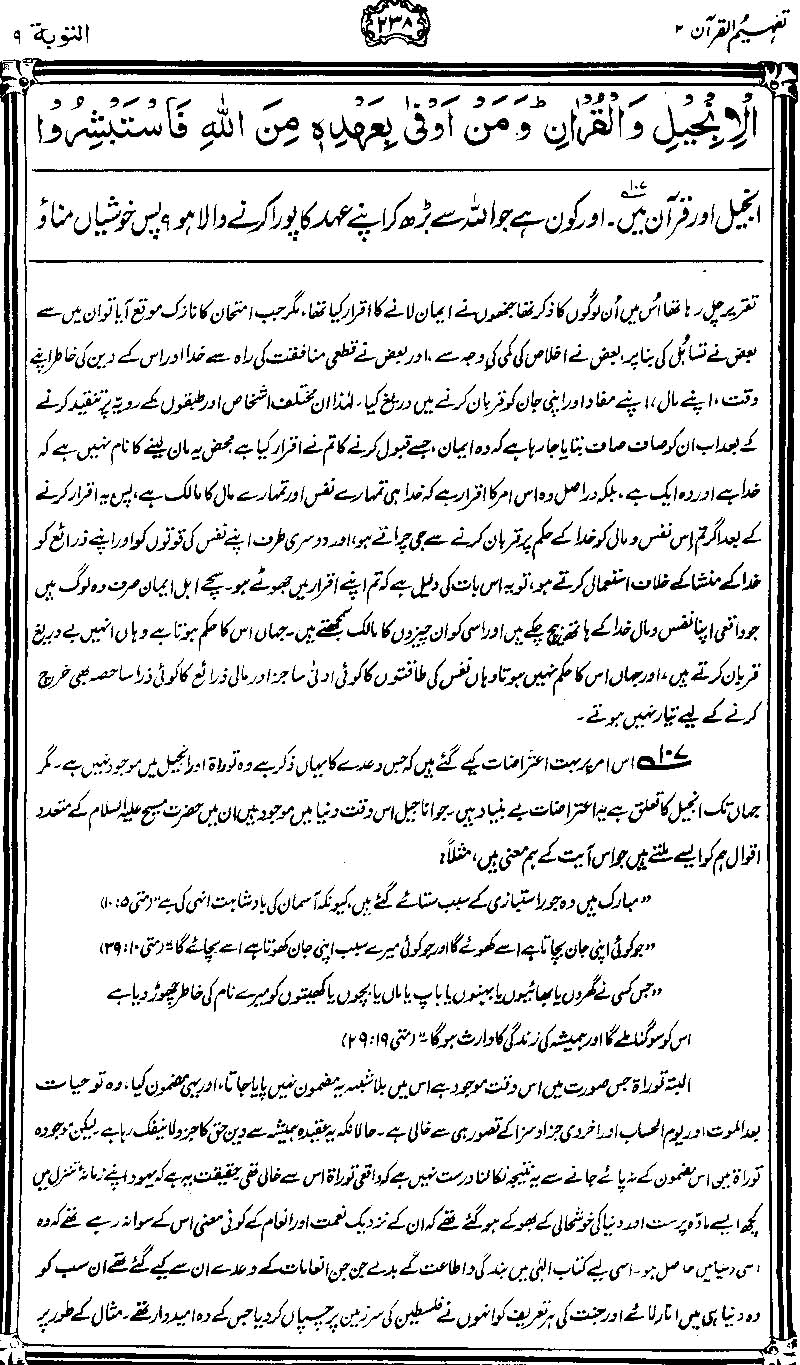 تفہیم القرآن ۲
۲۳۸
التوبة ۹
الْاِنْجِيْلِ وَالْقُرْاٰنِ ؕ وَمَنْ اَوْفٰى بِعَهْدِهٖ مِنَ اللّٰهِ فَاسْتَبْشِرُوْا
انجیل اور قرآن میں۱۰۷۔ اور کون ہے جو اللہ سے بڑھ کر اپنے عہد کا پورا کرنے والا ہو؟ پس خوشیاں مناؤ
تقریر چل رہا تھا اُس میں اُن لوگوں کا ذکر تھا جنھوں نے ایمان لانے کا اقرار کیا تھا، مگر جب امتحان کا نازک موقع آیا تو ان میں سے
بعض نے تساہُل کی بنا پر، بعض نے اخلاص کی کمی کی وجہ سے، اور بعض نے قطعی منافقت کی راہ سے خدا اور اس کے دین کی خاطر اپنے
وقت، اپنے مال، اپنے مفاد اور اپنی جان کو قربان کرنے میں دریغ کیا۔ لہٰذا ان مختلف اشخاص اور طبقوں کے رویہ پر تنقید کرنے
کے بعد اب ان کو صاف صاف بتایا جا رہا ہے کہ وہ ایمان، جسے قبول کرنے کا تم نے اقرار کیا ہے محض یہ مان لینے کا نام نہیں ہے کہ
خدا ہے اور وہ ایک ہے، بلکہ دراصل وہ اس امر کا اقرار ہے کہ خدا ہی تمہارے نفس اور تمہارے مال کا مالک ہے، پس یہ اقرار کرنے
کے بعد اگر تم اس نفس و مال کو خدا کے حکم پر قربان کرنے سے جی چراتے ہو، اور دوسری طرف اپنے نفس کی قوتوں کو اور اپنے ذرائع کو
خدا کے منشا کے خلاف استعمال کرتے ہو، تو یہ اس بات کی دلیل ہے کہ تم اپنے اقرار میں جھوٹے ہو۔ سچے اہل ایمان صرف وہ لوگ ہیں
جو واقعی اپنا نفس و مال خدا کے ہاتھ بیچ چکے ہیں اور اسی کو ان چیزوں کا مالک سمجھتے ہیں۔ جہاں اس کا حکم ہوتا ہے وہاں انہیں بے دریغ
قربان کرتے ہیں، اور جہاں اس کا حکم نہیں ہوتا وہاں نفس کی طاقتوں کا کوئی ادنیٰ سا جز اور مالی ذرائع کا کوئی ذرا سا حصہ بھی خرچ
کرنے کے لیے تیار نہیں ہوتے۔
۱۰۷ اس امر پر بہت اعتراضات کیے گئے ہیں کہ جس وعدے کا یہاں ذکر ہے وہ توراۃ اور انجیل میں موجود نہیں ہے۔ مگر
جہاں تک انجیل کا تعلق ہے یہ اعتراضات بے بنیاد ہیں۔ جو اناجیل اس وقت دنیا میں موجود ہیں ان میں حضرت مسیح علیہ السلام کے متعدد
اقوال ہم کو ایسے ملتے ہیں جو اس آیت کے ہم معنی ہیں، مثلاً:
”مبارک ہیں وہ جو راستبازی کے سبب ستائے گئے ہیں، کیونکہ آسمان کی بادشاہت انہی کی ہے“ (متی ۵:۱۰)
”جو کوئی اپنی جان بچاتا ہے اسے کھوئے گا اور جو کوئی میرے سبب اپنی جان کھوتا ہے اسے بچائے گا“ (متی ۱۰:۳۹)
”جس کسی نے گھروں یا بھائیوں یا بہنوں یا باپ یا ماں یا بچوں یا کھیتوں کو میرے نام کی خاطر چھوڑ دیا ہے
اس کو سو گنا ملے گا اور ہمیشہ کی زندگی کا وارث ہوگا“ (متی ۱۹:۲۹)
البتہ توراۃ جس صورت میں اس وقت موجود ہے اس میں بلاشبہ یہ مضمون نہیں پایا جاتا، اور یہی مضمون کیا، وہ تو حیات
بعد الموت اور یوم الحساب اور اخروی جزاو سزا کے تصور ہی سے خالی ہے۔ حالانکہ یہ عقیدہ ہمیشہ سے دین حق کا جزو لاینفک رہا ہے۔ لیکن موجودہ
توراۃ میں اس مضمون کے نہ پائے جانے سے یہ نتیجہ نکالنا درست نہیں ہے کہ واقعی توراۃ اس سے خالی تھی۔ حقیقت یہ ہے کہ یہود اپنے زمانۂ تنزل میں
کچھ ایسے مادّہ پرست اور دنیا کی خوشحالی کے بھوکے ہو گئے تھے کہ ان کے نزدیک نعمت اور انعام کے کوئی معنی اس کے سوا نہ رہے تھے کہ وہ
اسی دنیا میں حاصل ہو۔ اسی لیے کتاب الٰہی میں بندگی و اطاعت کے بدلے جن جن انعامات کے وعدے ان سے کیے گئے تھے ان سب کو
وہ دنیا ہی میں اتار لائے اور جنت کی ہر تعریف کو انہوں نے فلسطین کی سرزمین پر چسپاں کر دیا جس کے وہ امیدوار تھے۔ مثال کے طور پر